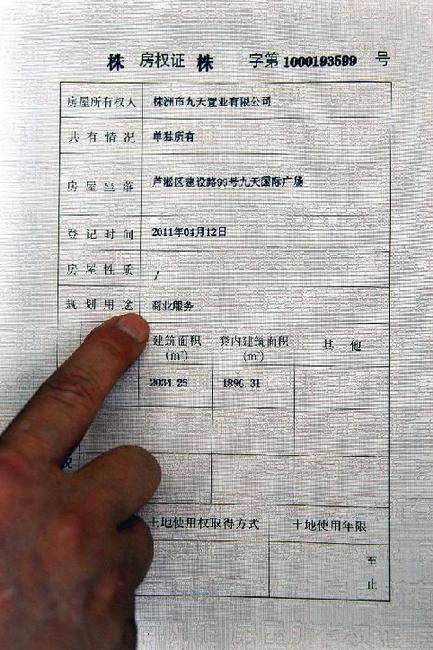 株 房权证 株 字第 1000193599 号
房屋所有权人 株洲市九天置业有限公司
共有情况 单独所有
房屋坐落 芦淞区建设路99号九天国际广场
登记时间 2011年04月12日
房屋性质 /
规划用途 商业服务
建筑面积 (㎡) 套内建筑面积 (㎡) 其他
2034.25 1896.31
土地使用权取得方式 土地使用年限
至
止